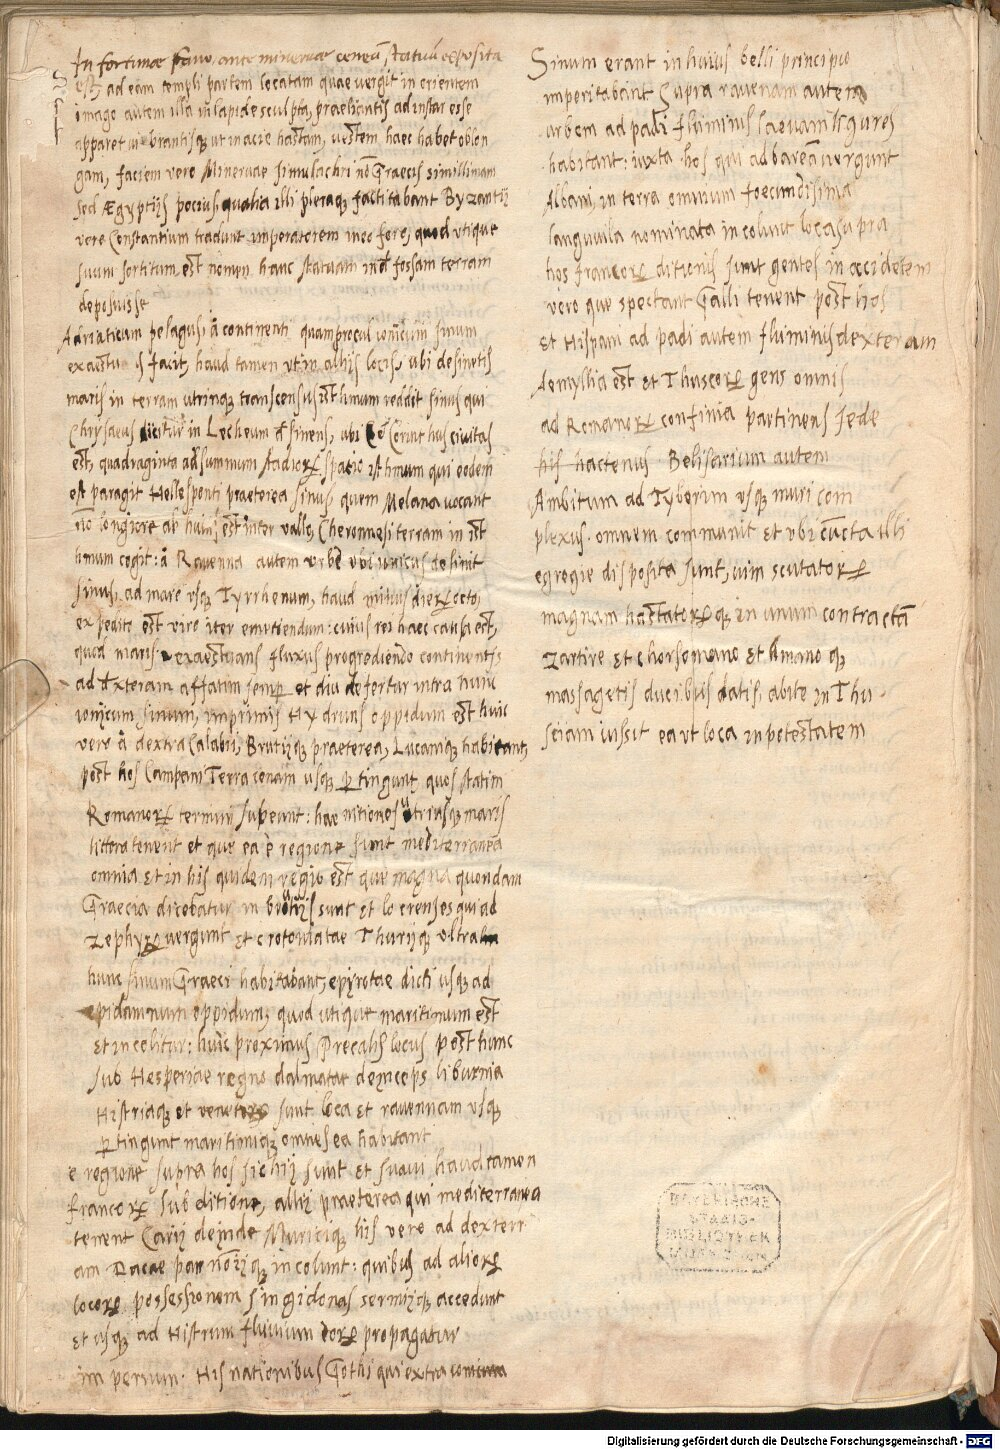 In fortunae fano, ante minervae ceneū statuā exposita
est, ad eam templi partem locatam quae vergit in orientem
imago autem illa in lapide sculpta, praeliantis ad instar esse
apparet vibrantisq; ut in acie hastam, vestem haec habet oblon
gam, faciem vero Minervae simulachri nō Graecis simillimam
sed Ægyptijs pocius, qualia illi pleraq; factitabant Byzantij
vero Constantium tradunt imperatorem ineo fere, quod utique
suum sortitum est nomen hanc statuam in fossam terram
deposuisse
Adriaticum pelagus, á continenti quamprocul ionicum sinum
exaestuās facit, haud tamen ut in alijs locis, ubi desinetis
maris in terram utrinq; transcensus isthmum reddit sinus qui
Chrysaeus dicitur in Lecheum desinens, ubi Corinthus civitas
est, quadraginta ad summum stadiorȝ spatio isthmum qui eodem
est paragit Hellesponti praeterea sinus, quem Melana vocant
nō longiore ab huiꝰ est inter vallo, Cheronnosi terram in ist
hmum cogit: á Ravenna autem urbe ubi ionicus desinit
sinus, ad mare usq; Tyrrhenum, haud minus dierȝ octo,
expedito est viro iter emetiendum: cuius rei haec causa est,
quod maris exaestuans fluxus progrediendo continentis
ad dexteram affatim semper et diu defertur intra hunc
ionicum sinum, imprimis Hydruns oppidum est huic
vero á dextra Calabri, Brutijq; praeterea, Lucaniq; habitant,
post hos Campani Terraconam usq; pertingunt, quos statim
Romanorȝ termini subeunt: hae nationes utriusq; maris
littora tenent et que ea é regione sunt mediterranea
omnia et in his quidem regio est que magna quondam
Graecia dicebatur in brutijs sunt et locrenses qui ad
Zephyrȝ vergunt et crotoniatae Thurijq; ultra
hunc sinum Graeci habitabant, epyrotae dicti usq; ad
epidamnum oppidum, quod utique maritimum est
et incolitur: huic proximus Precalis locus post hunc
sub Hesperiae regno dalmatae deinceps liburnia
Histriaq; et venetorȝ sunt loca et ravennam usq;
pertingunt maritimiq; omnes ea habitant
e regione supra hos sichij sunt et suavi haud tamen
francorȝ sub ditione, allij praeterea qui mediterranea
tenent Carij deinde Nuriciq; his vero ad dexter
am Dacae pannōijq; incolunt: quibus ad aliorȝ
locorȝ possessionem singidonas sermijq; accedunt
et usq; ad Histrum fluvium eorȝ propagatur
imperium. His nationibus Gothi qui extra
Sinum erant in huius belli principio
imperitabant Supra ravenam autem
urbem ad padi fluminis laevam ligures
habitant: iuxta hos qui ad boreā vergunt
Albani, in terra omnium foecundissima
languvila nominata incolunt loca supra
hos francorȝ ditionis sunt gentes in occidetem
vero que spectant Galli tenent post hos
et Hispani ad padi autem fluminis dexteram
Aemyllia est et Thuscorȝ gens omnis
ad Romanorȝ confinia partinens sede
his hactenus Belisarium autem
Ambitum ad Tyberim usq; muri com
plexus omnem communit et ubi cūcta illi
egregie disposita sunt, vim scutatorȝ
magnam hastatorȝq; in unum contractā
Zartire et chorsomano et Amano q;
massagetis ducibus datis, abire in Thu
sciam iussit ea ut loca in potestatem
BAYERISCHE
STAATS-
BIBLIOTHEK
MÜNCHEN
Digitalisierung gefördert durch die Deutsche Forschungsgemeinschaft - DFG